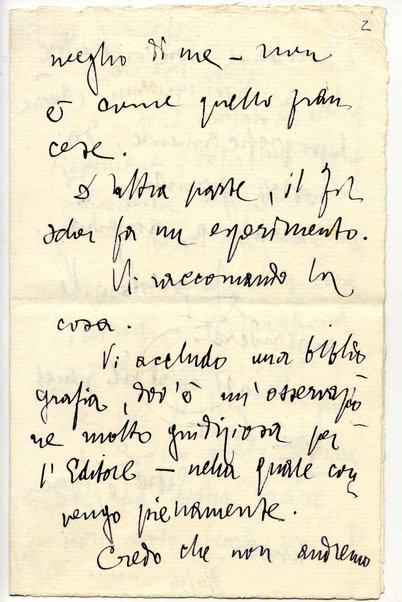 2
meglio di me – non
è come quello fran
cese.
D'altra parte, il
fa un esperimento.
Vi raccomando la
cosa.
Vi accludo una biblio
grafia, dov'è un'osservazio
ne molto giudiziosa per
l'Editore – nella quale con
vengo pienamente.
Credo che non andremo